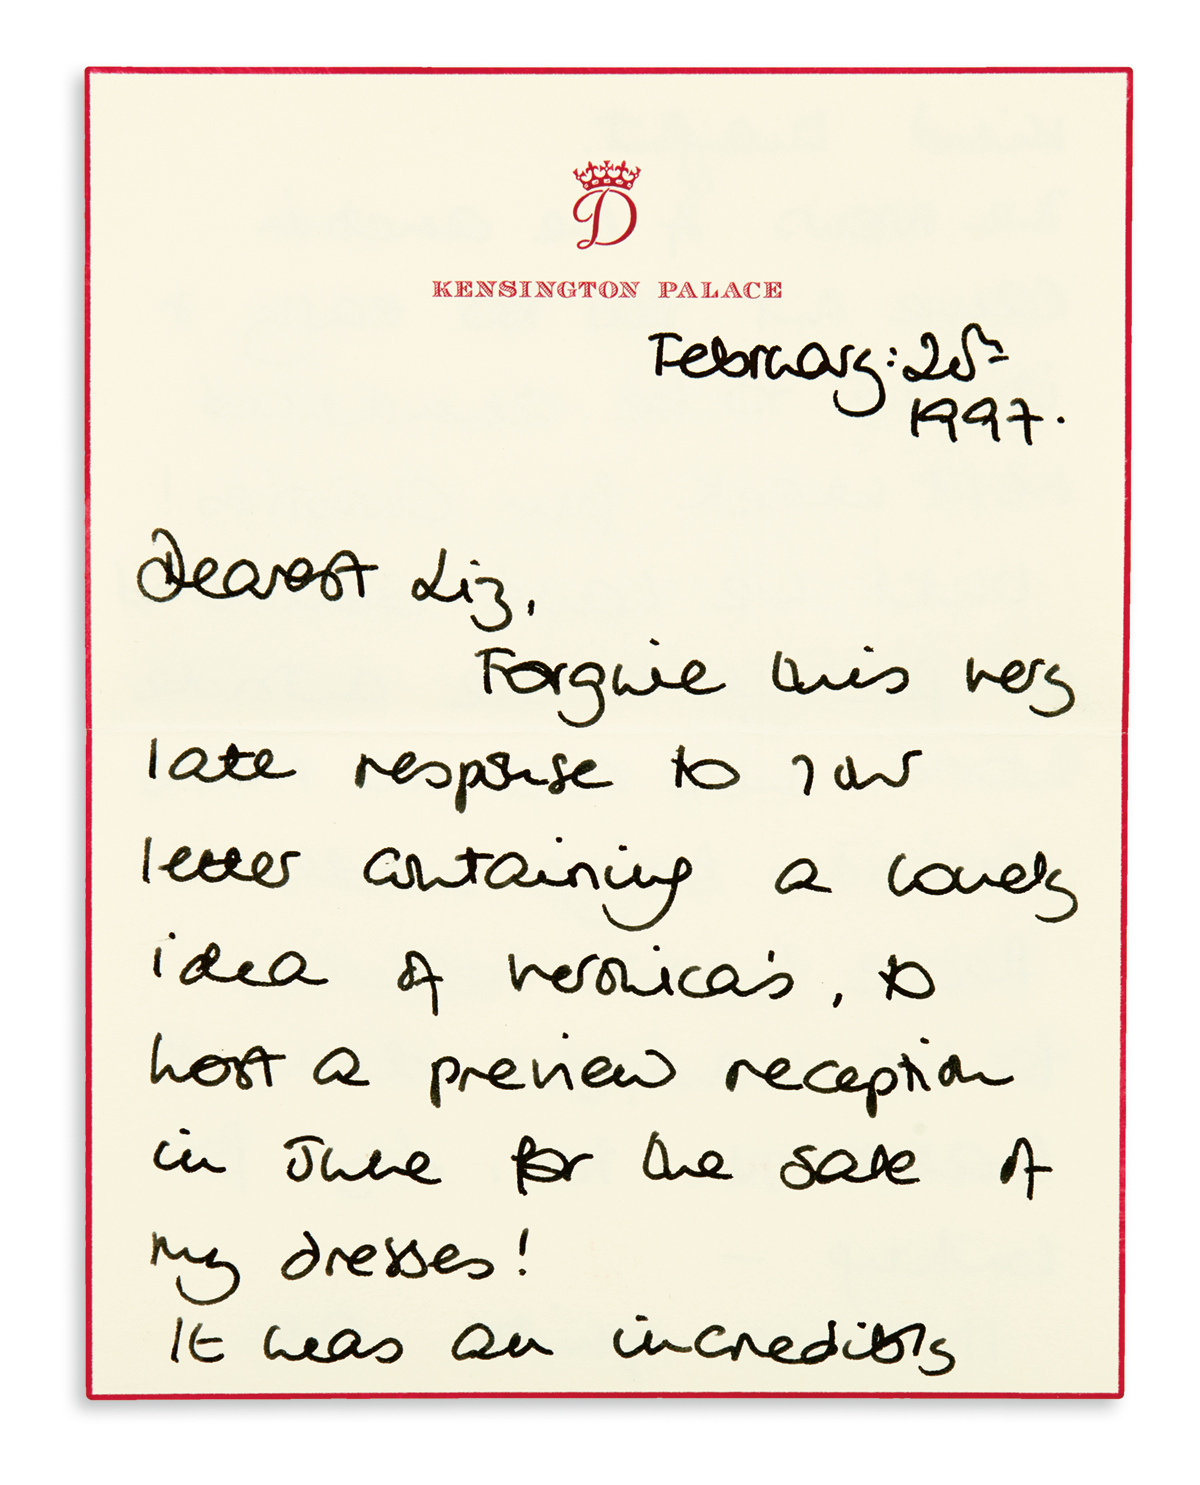 D
KENSINGTON PALACE
February: 25th
1997.
Dearest Liz,
Forgive this very
late response to your
letter containing a lovely
idea of Veronica's, to
host a preview reception
in June for the sale of
my dresses!
It was an incredibly